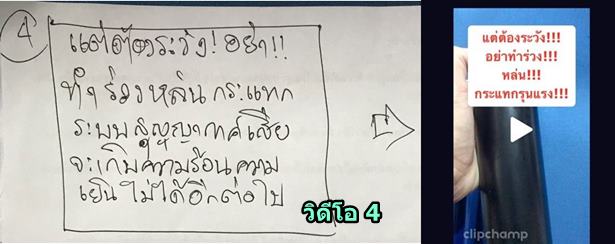 4
แต่ต้องระวัง! อย่า!!
ทำร่วงหล่นกระแทก
ระบบสูญญากาศเสีย
จะเก็บความร้อนความ
เย็นไม่ได้อีกต่อไป
วิดีโอ 4
แต่ต้องระวัง!!!
อย่าทำร่วง!!!
หล่น!!!
กระแทกรุนแรง!!!
clipchamp